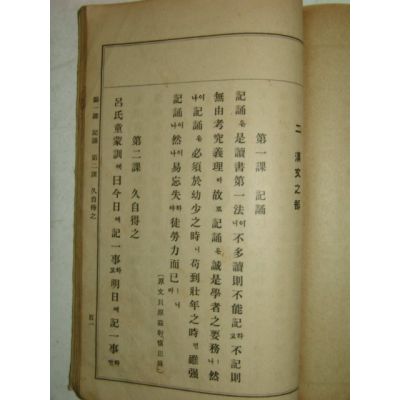 二 漢文之部
第一課 記誦
記誦은 是讀書第一法이니 不多讀則不能記하고 不記則
無由考究義理 故로 記誦은 誠是學者之要務나 然
이나 記誦은 必須於幼少之時니 苟到壯年之時면 雖强
記誦이나 然이나 易忘失하야 徒勞力而已니라
(原文貝原益軒愼思錄)
第二課 久自得之
呂氏童蒙訓에 曰今日에 記一事하고 明日에 記一事하면
第一課 記誦 第二課 久自得之 五一